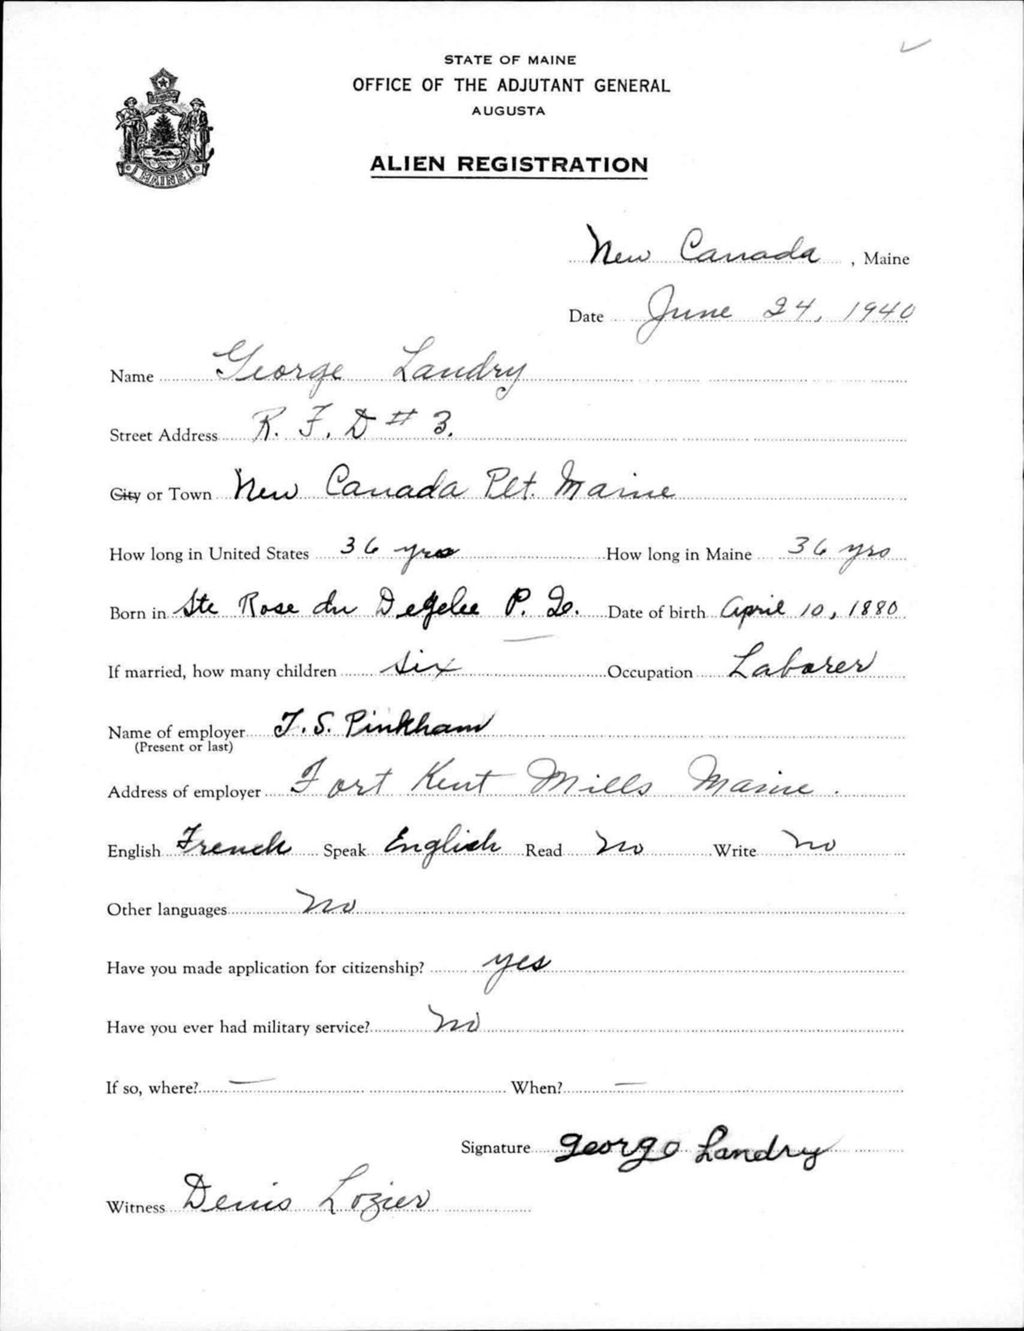 STATE OF MAINE
OFFICE OF THE ADJUTANT GENERAL
AUGUSTA
ALIEN REGISTRATION
MAINE
New Canada, Maine
Date June 24, 1940
Name George Landry
Street Address R. F. D # 3.
City or Town New Canada Plt. Maine
How long in United States 36 yrs How long in Maine 36 yrs
Born in Ste Rose du Degelee P. Q. Date of birth April 10, 1880
If married, how many children six Occupation Laborer
Name of employer T. S. Pinkham
(Present or last)
Address of employer Fort Kent Mills Maine.
English French Speak English Read No Write No
Other languages No
Have you made application for citizenship? yes
Have you ever had military service? No
If so, where? — When? —
Signature George Landry
Witness Denis Lozier